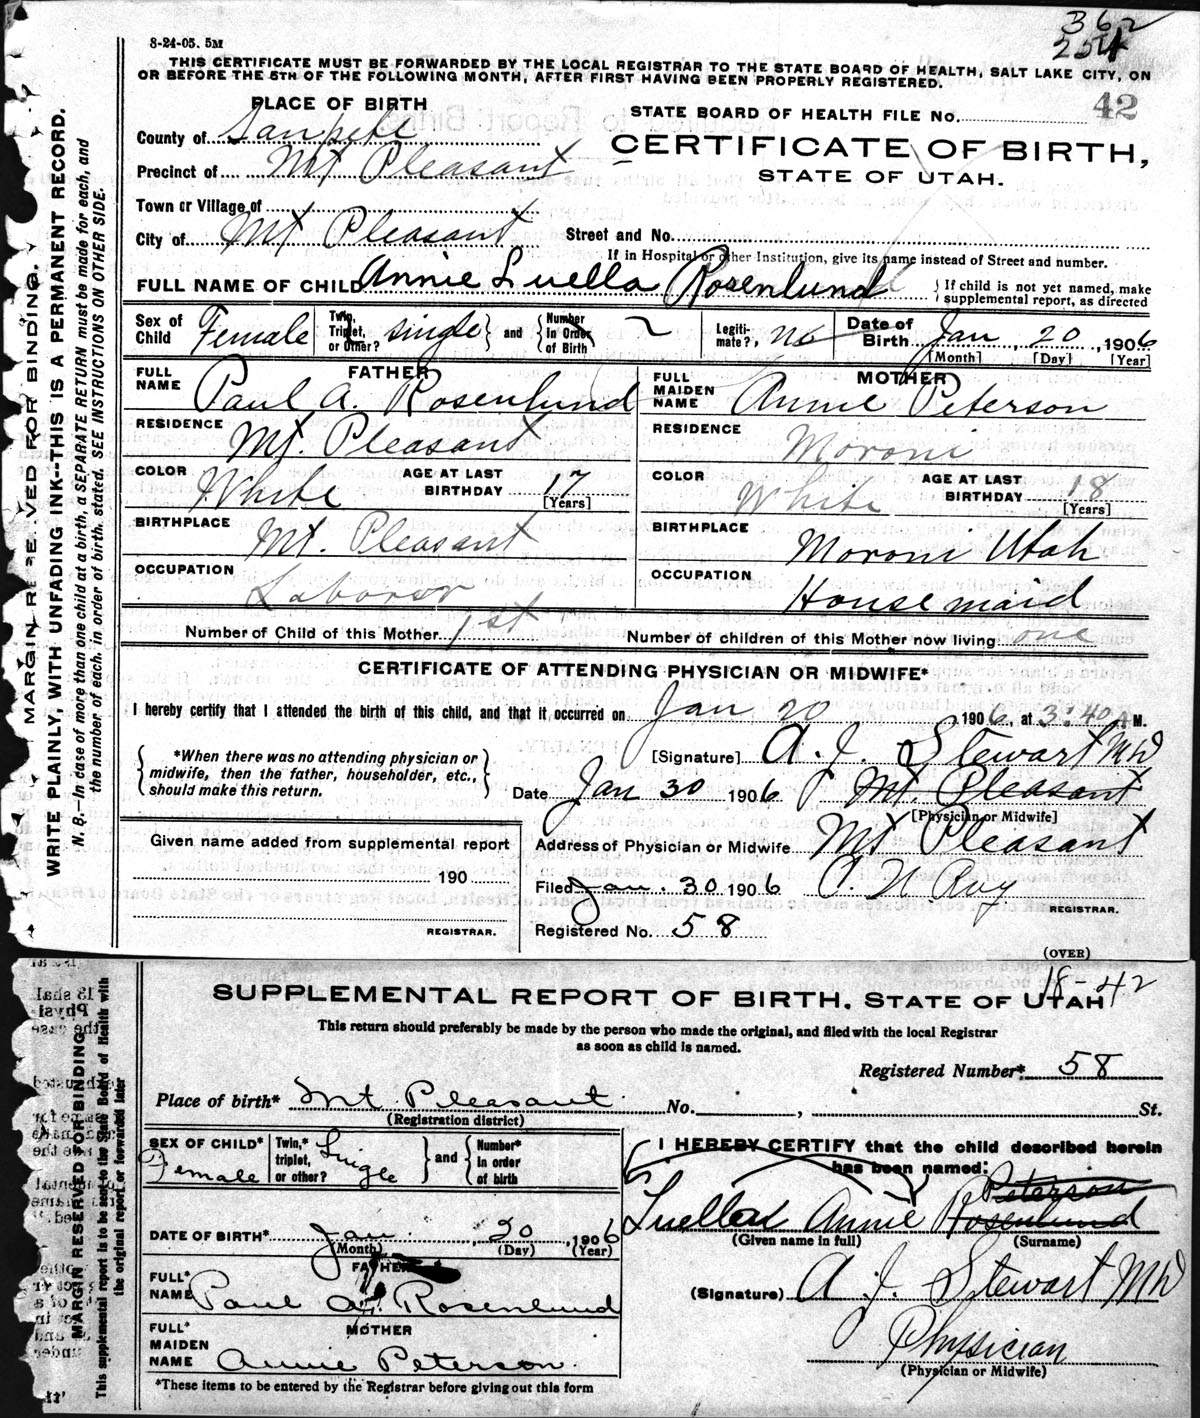 362
254
8-24-05. 5M
THIS CERTIFICATE MUST BE FORWARDED BY THE LOCAL REGISTRAR TO THE STATE BOARD OF HEALTH, SALT LAKE CITY, ON
OR BEFORE THE 5TH OF THE FOLLOWING MONTH, AFTER FIRST HAVING BEEN PROPERLY REGISTERED.
MARGIN RESERVED FOR BINDING.
WRITE PLAINLY, WITH UNFADING INK--THIS IS A PERMANENT RECORD.
N. B.—In case of more than one child at birth, a SEPARATE RETURN must be made for each, and
the number of each, in order of birth, stated. SEE INSTRUCTIONS ON OTHER SIDE.
PLACE OF BIRTH
County of Sanpete
Precinct of Mt Pleasant
Town or Village of
City of Mt Pleasant
STATE BOARD OF HEALTH FILE No. 42
CERTIFICATE OF BIRTH,
STATE OF UTAH.
Street and No.
If in Hospital or other Institution, give its name instead of Street and number.
FULL NAME OF CHILD Annie Luella Rosenlund
If child is not yet named, make
supplemental report, as directed
Sex of Child Female
Twin, Triplet, or Other? single and Number in Order of Birth
Legitimate? no
Date of Birth Jan 20, 1906
[Month] [Day] [Year]
FATHER
FULL NAME Paul A. Rosenlund
RESIDENCE Mt. Pleasant
COLOR White AGE AT LAST BIRTHDAY 17 [Years]
BIRTHPLACE Mt. Pleasant
OCCUPATION Laborer
MOTHER
FULL MAIDEN NAME Annie Peterson
RESIDENCE Moroni
COLOR White AGE AT LAST BIRTHDAY 18 [Years]
BIRTHPLACE Moroni Utah
OCCUPATION Housemaid
Number of Child of this Mother 1st Number of children of this Mother now living one
CERTIFICATE OF ATTENDING PHYSICIAN OR MIDWIFE*
I hereby certify that I attended the birth of this child, and that it occurred on Jan 20 1906, at 3:40 A M.
*When there was no attending physician or
midwife, then the father, householder, etc.,
should make this return.
[Signature] A. J. Stewart MD
Date Jan 30 1906 Mt. Pleasant
[Physician or Midwife]
Given name added from supplemental report
190
REGISTRAR.
Address of Physician or Midwife Mt Pleasant
Filed Jan. 30 1906
REGISTRAR.
Registered No. 58
(OVER)
18-42
SUPPLEMENTAL REPORT OF BIRTH, STATE OF UTAH
This return should preferably be made by the person who made the original, and filed with the local Registrar
as soon as child is named.
MARGIN RESERVED FOR BINDING
This supplemental report is to be sent to the State Board of Health with
the original report or forwarded later
Registered Number* 58
Place of birth* Mt Pleasant No. , St.
(Registration district)
SEX OF CHILD* Female
Twin,* triplet, or other? Single and Number* in order of birth
DATE OF BIRTH* Jan. 20, 1906
(Month) (Day) (Year)
FATHER
FULL* NAME Paul A. Rosenlund
MOTHER
FULL* MAIDEN NAME Annie Peterson
*These items to be entered by the Registrar before giving out this form
I HEREBY CERTIFY that the child described herein
has been named:
Peterson
Luella Annie Rosenlund
(Given name in full) (Surname)
(Signature) A J. Stewart MD
Physician
(Physician or Midwife)